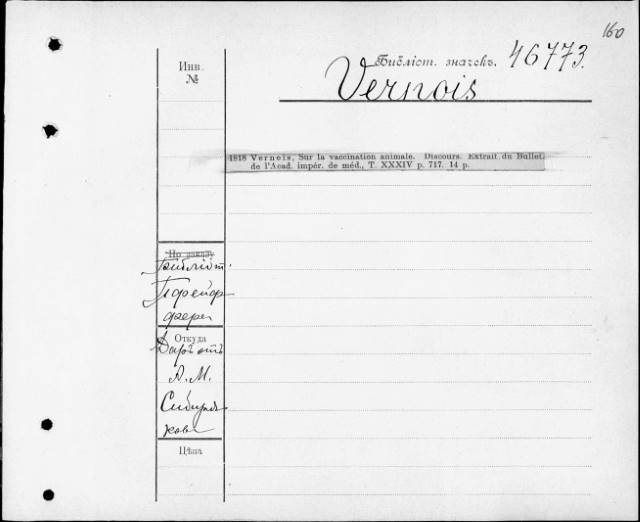 160
Библіот. значекъ. 46773.
Vernois
Инв.
№
1818 Vernois, Sur la vaccination animale. Discours. Extrait du Bullet.
de l'Acad. impér. de méd., T. XXXIV p. 717. 14 p.
По заказу
Библіот.
Пфейф
фера
Откуда
Даръ отъ
А. М.
Сибиря-
кова
Цѣна